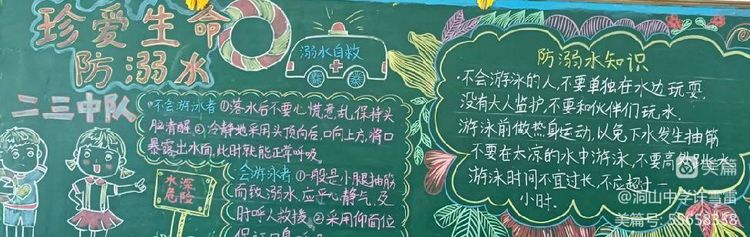 珍爱生命
防溺水
二三中队
溺水自救
不会游泳者①落水后不要心慌意乱,保持头
脑清醒②冷静地采用头顶向后,口向上方,将口
暴露出水面,此时就能正常呼吸。
会游泳者①一般是小腿抽筋
而致溺水,应平心静气,及
时呼人救援。②采用仰面位
水深
危险
防溺水知识
·不会游泳的人,不要单独在水边玩耍。
没有大人监护,不要和伙伴们玩水。
游泳前做热身运动,以免下水发生抽筋
不要在太凉的水中游泳,不要高处跳水
游泳时间不宜过长,不应超过一
小时.
美篇
@洞山中学许雪雷
美篇号:55658338